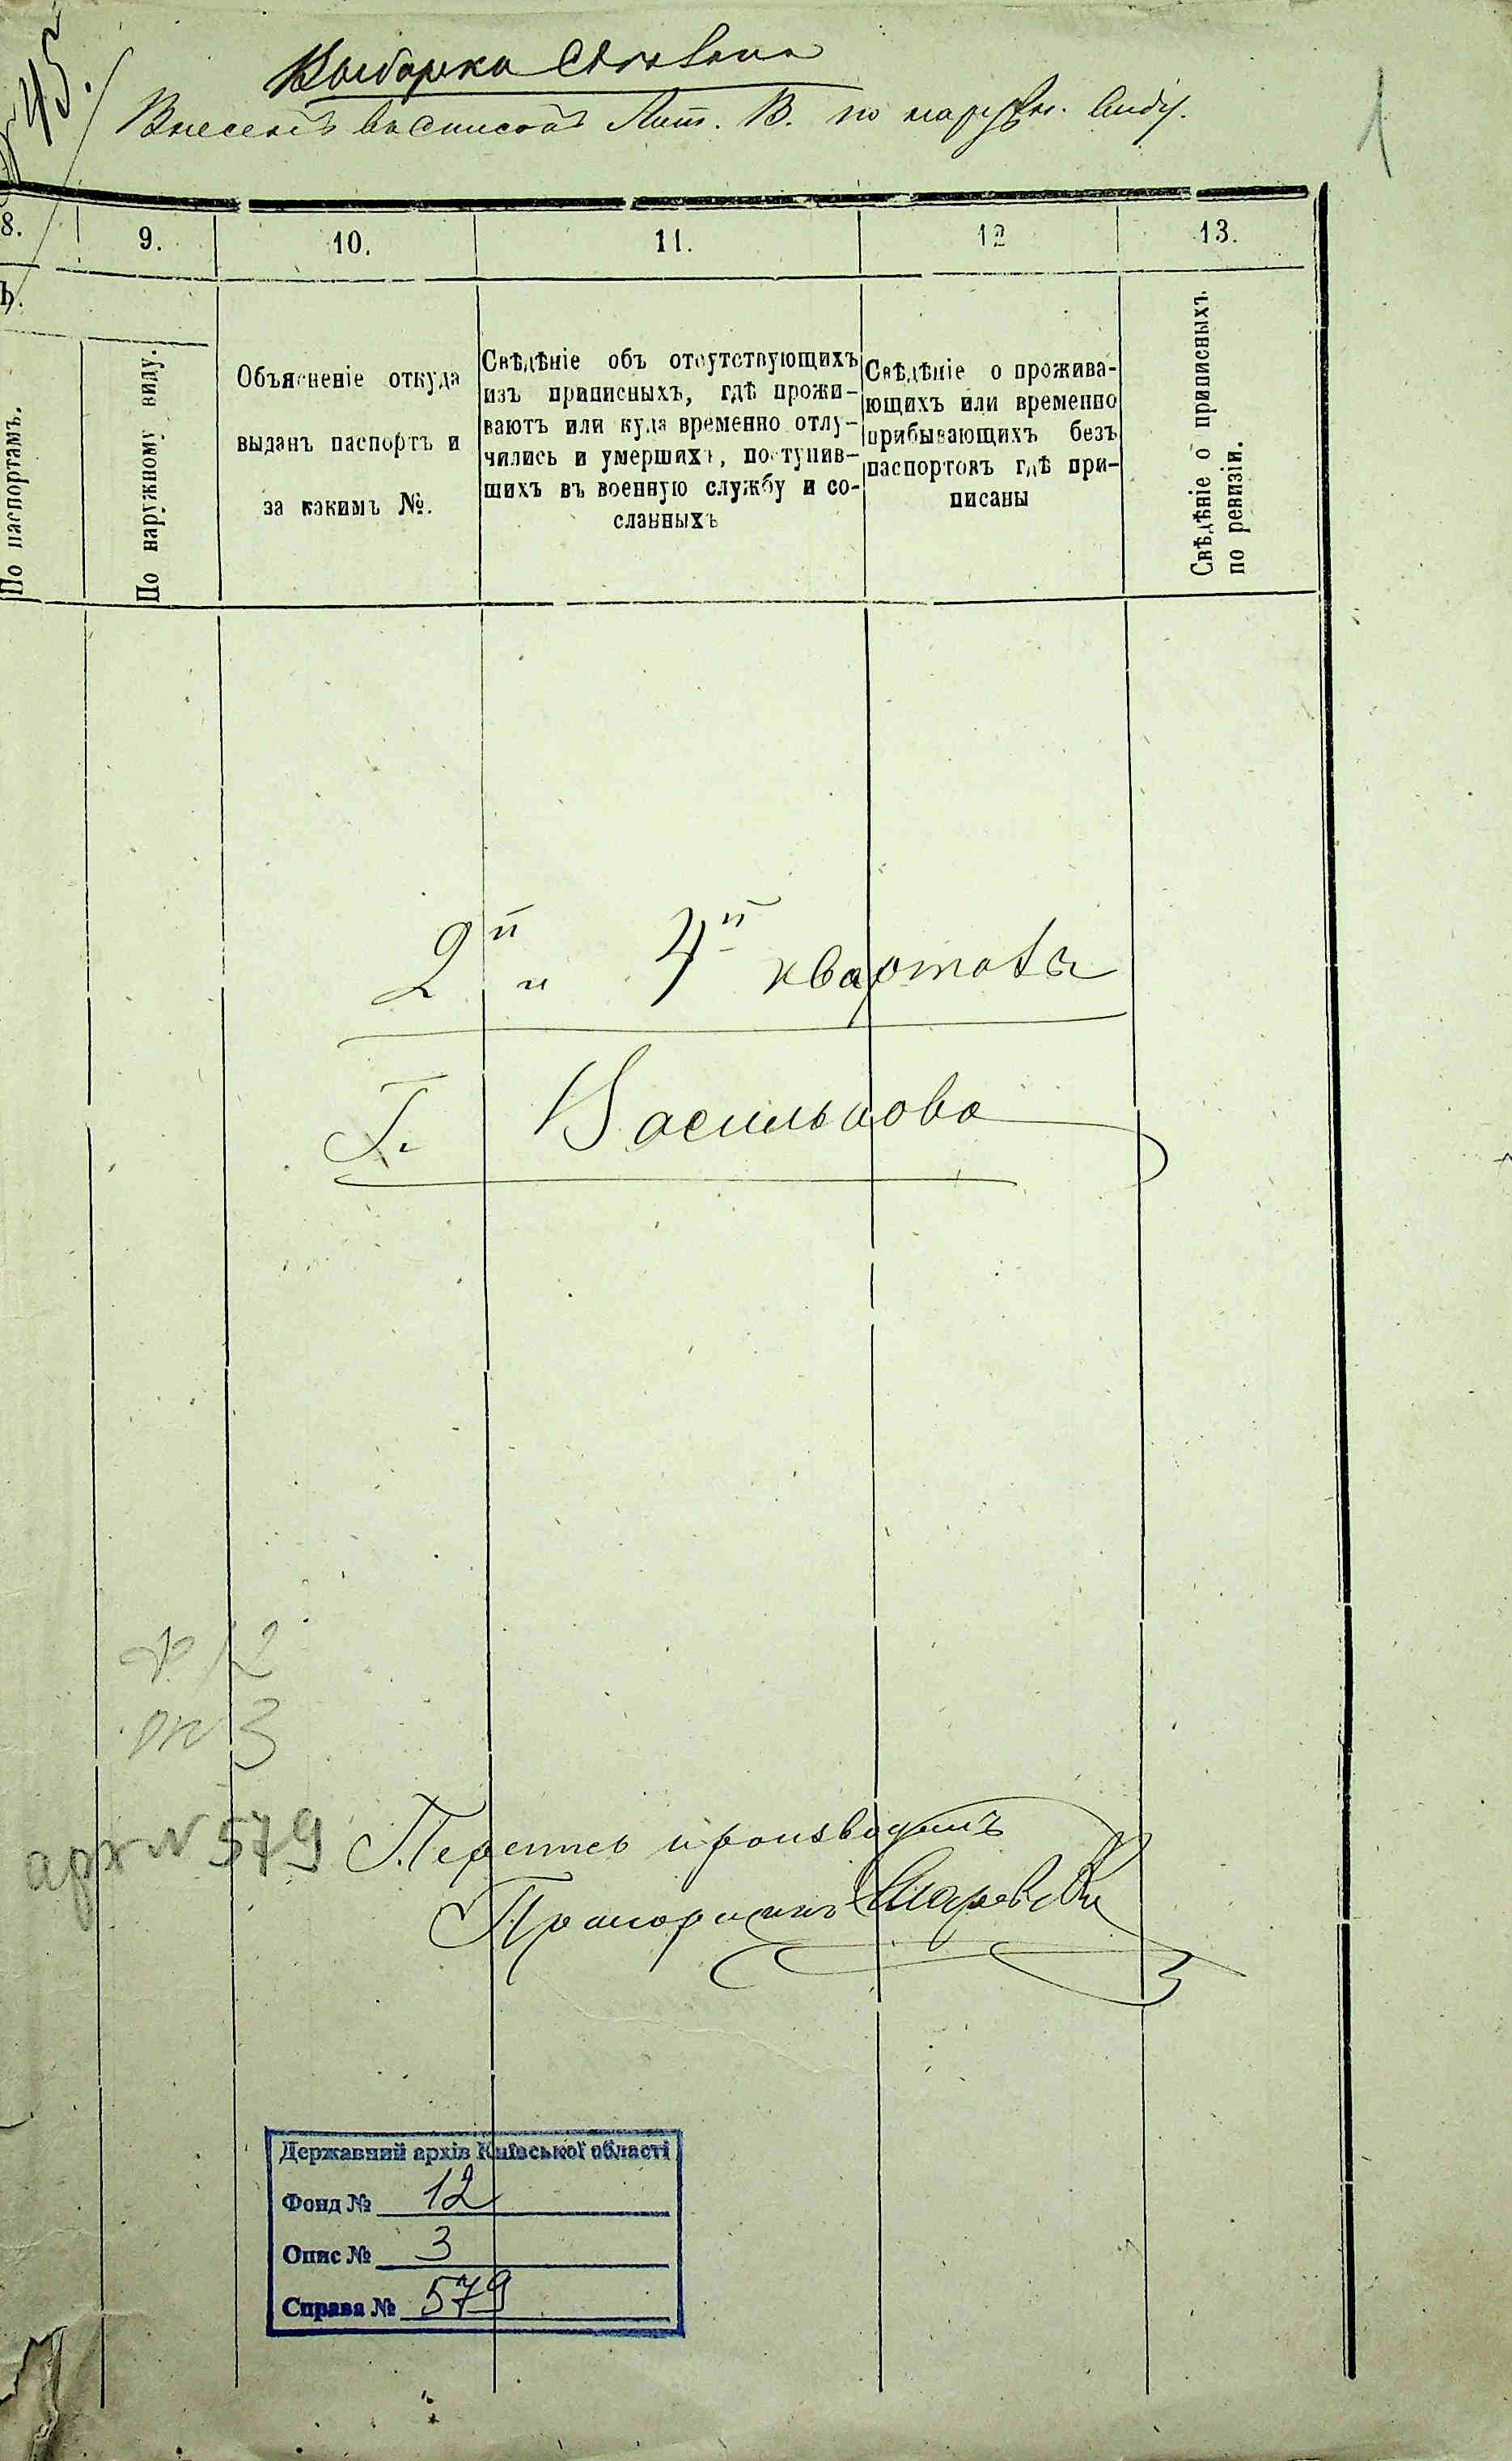 45.
Выборка сделана
Внесенъ въ списокъ Лит. В. по наружн. виду.
1
8. 9. 10. 11. 12 13.
ѣ.
По паспортамъ.
По наружному виду.
Объясненіе откуда
выданъ паспортъ и
за какимъ №.
Свѣдѣніе объ отсутствующихъ
изъ приписныхъ, гдѣ прожи-
ваютъ или куда временно отлу-
чились и умершихъ, поступив-
шихъ въ военную службу и со-
сланныхъ
Свѣдѣніе о прожива-
ющихъ или временно
прибывающихъ безъ
паспортовъ гдѣ при-
писаны
Свѣдѣніе о приписныхъ
по ревизіи.
2й и 4й квартала
Г. Василькова
ф 12
оп 3
арх № 579
Перепись производилъ
Прапорщикъ
Державний архів Київської області
Фонд № 12
Опис № 3
Справа № 579